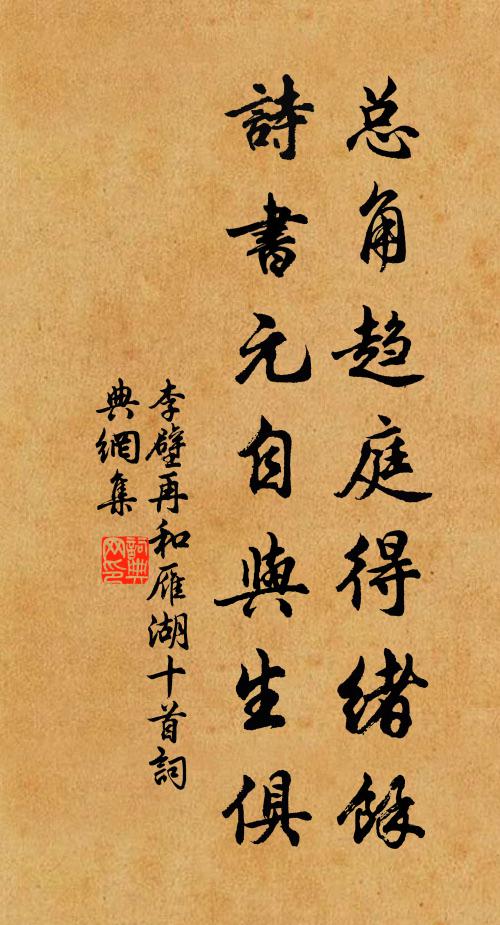 总角趋庭得绪馀
詩書元自與生俱
李壁再和雁湖十首詞
典網集
詞典网印